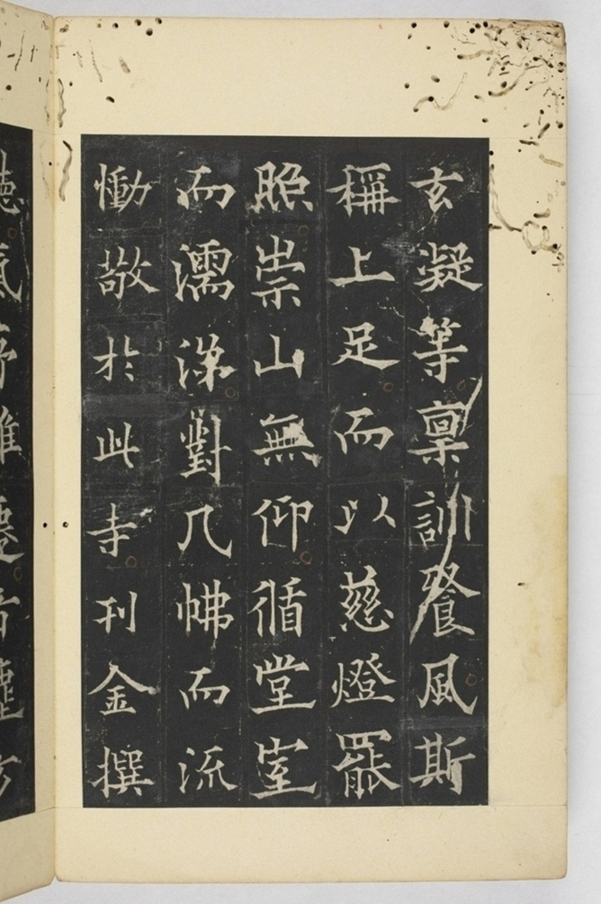 玄凝等稟訓餐風斯
稱上足而以慈燈罷
照崇山無仰循堂室
而濡涕對几而流
慟敬於此寺刊金撰